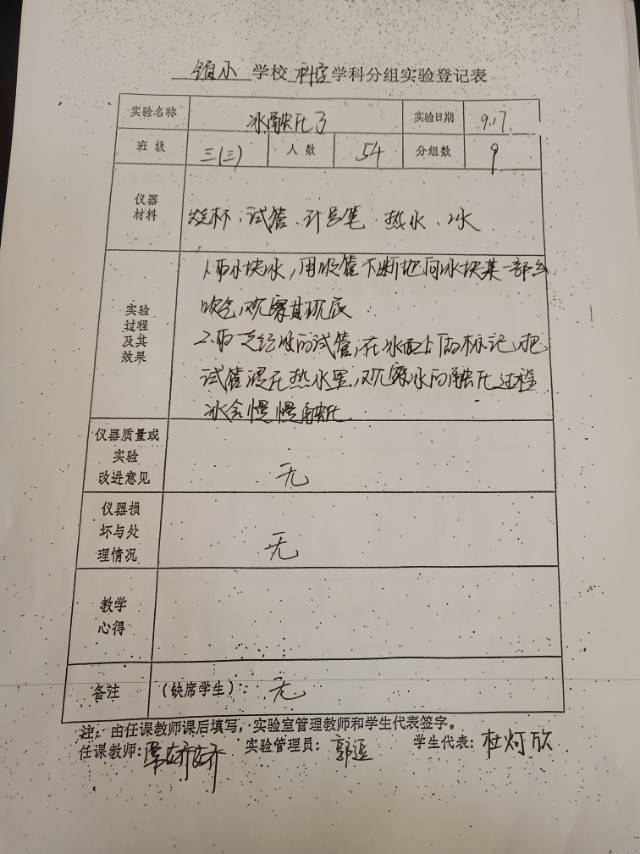 镇小 学校 科学 学科分组实验登记表
实验名称 冰融化了 实验日期 9.17.
班 级 三(三) 人 数 54 分组数 9
仪器
材料 烧杯、试管、计号笔、热水、冰
1.两小块冰，用吸管不断地向冰块某一部分
吹气，观察其现
实验
过程
及其
效果
2. 的试管，在冰面上 标记，把
试管浸在热水里，观察冰的融化过程
冰会慢慢融化
仪器质量或
实验
改进意见 无
仪器损
坏与处
理情况 无
教学
心得
备注 (缺席学生)： 无
注：由任课教师课后填写，实验室管理教师和学生代表签字。
任课教师: 娇娇 实验管理员： 郭 学生代表: 杜 欣